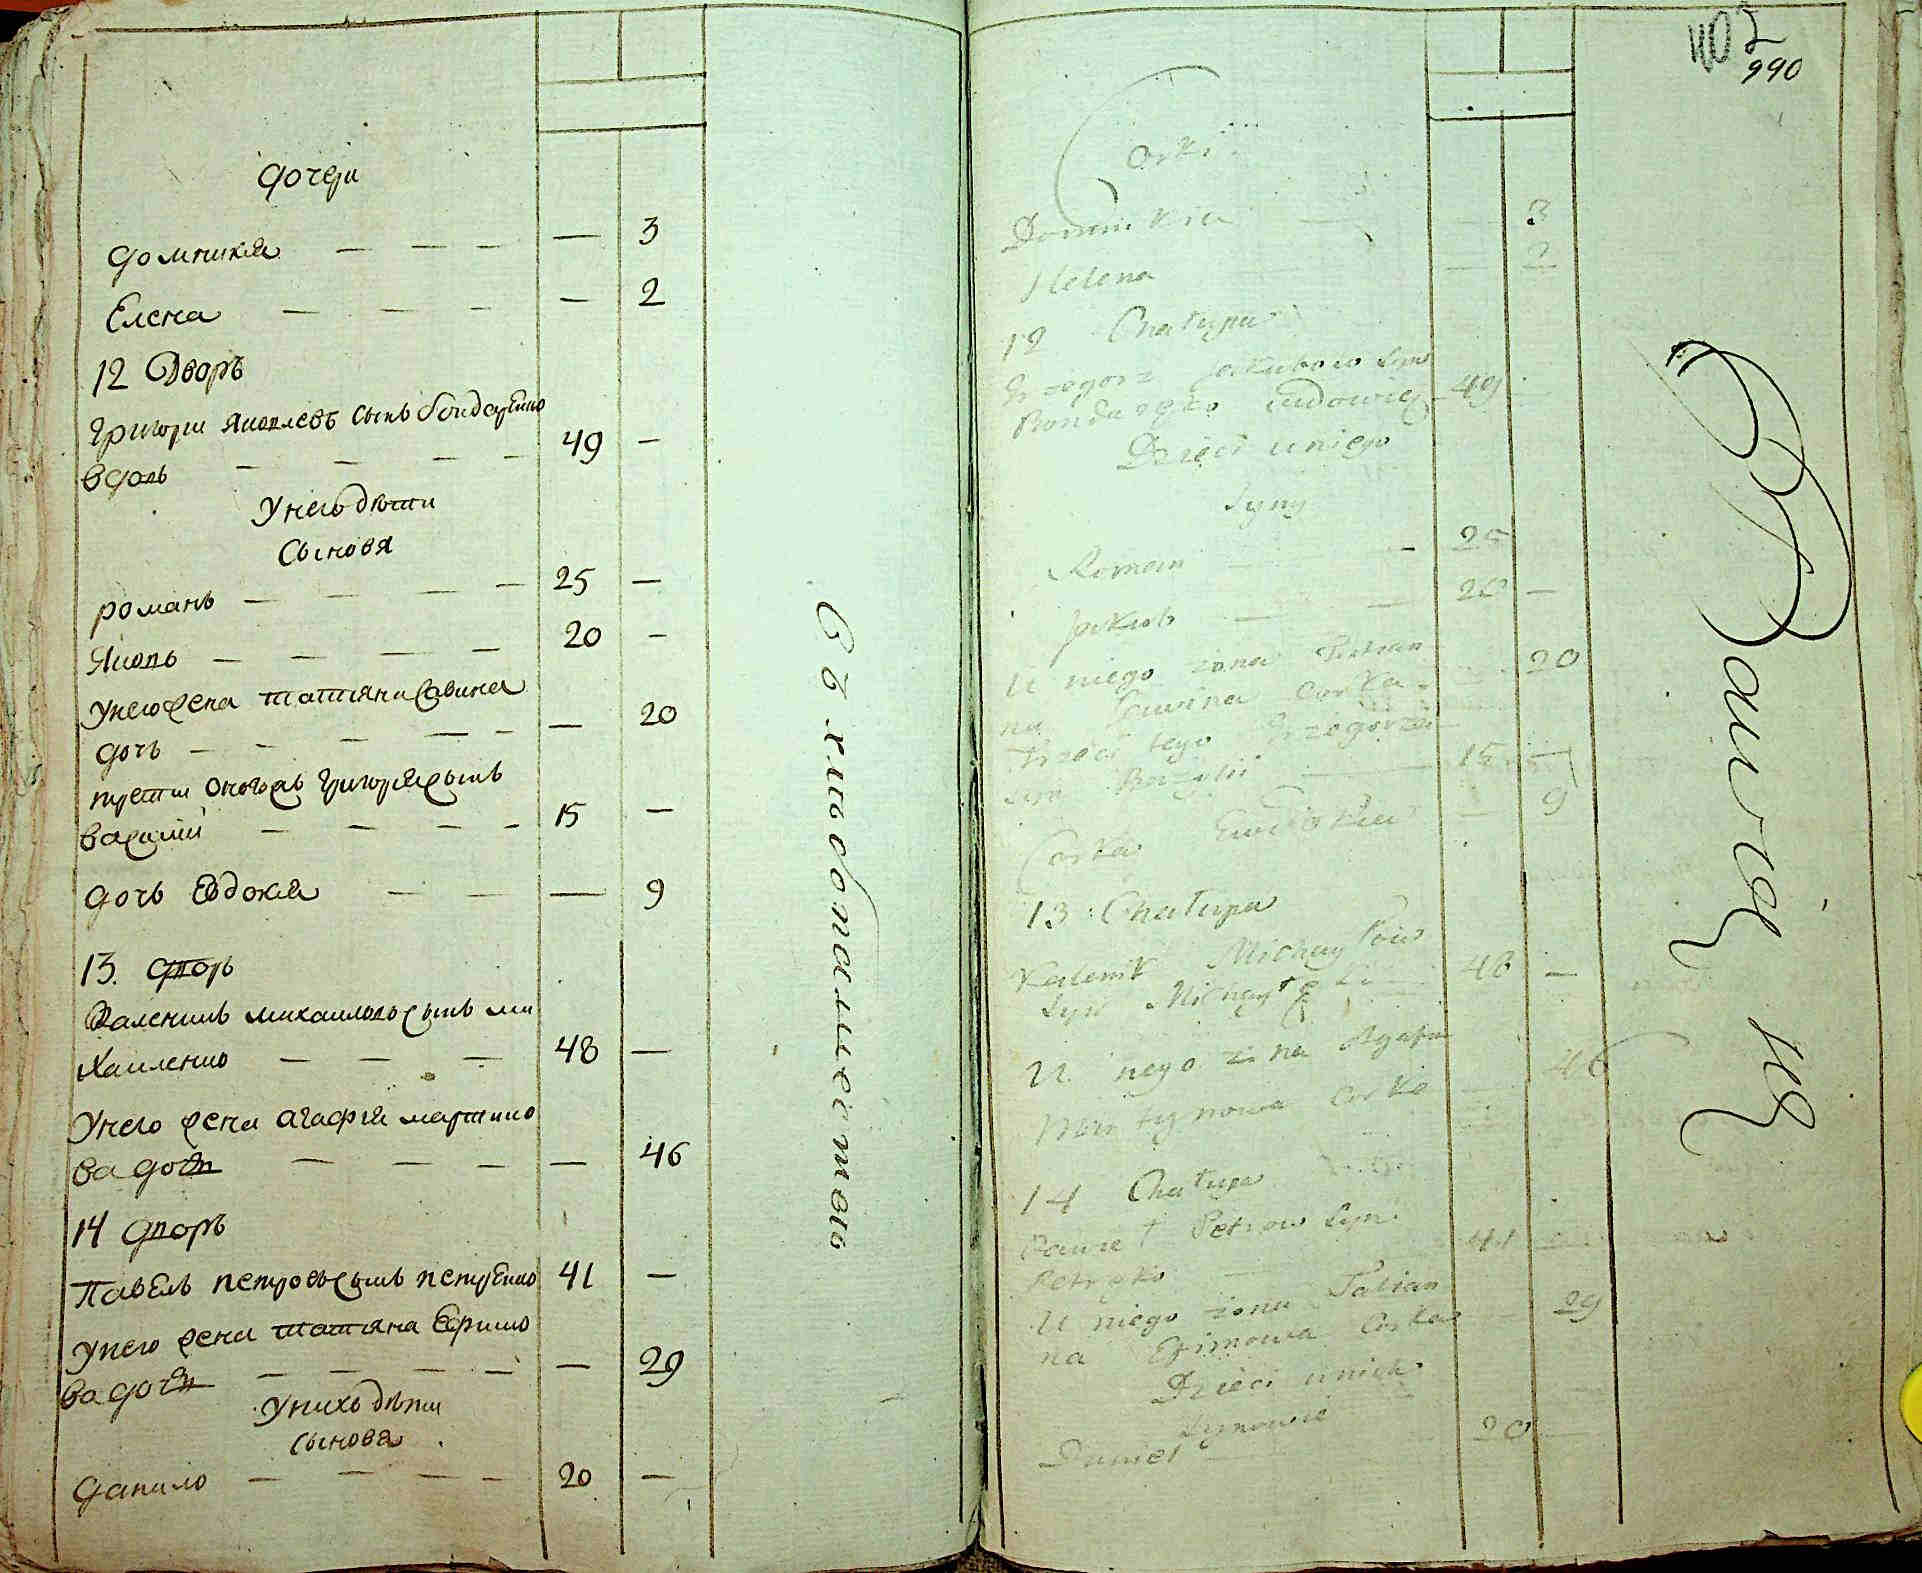 дочери
домникия — — — — 3
Елена — — — — 2
12 Дворъ
Григори Яковлевъ сынъ бондаренко
вдовъ — — — — 49 —
У него дѣти
Сыновя
романъ — — — — 25 —
Яковъ — — — — 20 —
У него жена татияна Савина
дочь — — — — — — 20
трети оногожъ Григория сынъ
василий — — — — 15 —
дочь Евдокия — — — 9
13. дворъ
Каленикъ михаиловъ сынъ ми
хаиленко — — — 48 —
У него жена агафия мартино
ва дочь — — — — 46
14 дворъ
Павелъ петровъ сынъ петренко 41 —
У него жена татияна Ефимо
ва дочь — — — — — 29
У нихъ дѣти
Сыновя
данило — — — — 20 —
402
990
Corki
Dominikia — — 3
Helena — 2
12 Chałupa
Grzegorz Jakubow Syn
Bondareko wdowiec 49
Dzieci u niego
Syny
Roman — — 25
Jakub — — 20 —
U niego żona Tatian
na Sawina Corka — 20
Trzeci tego Grzegorza
syn Bazylii — 15 —
Corka Ewdokia — 9
13 Chałupa
Kalenik Michayłow
Syn Michayłęko 48 —
U nego żona Agafia
Martynowa Corka — 46
14 Chałupa
Paweł Petrow Syn
Petręko — 41 —
U niego żona Tatian
na Efimowa Corka — 29
Dzieci u nich
Synowie
Daniel — 20 —